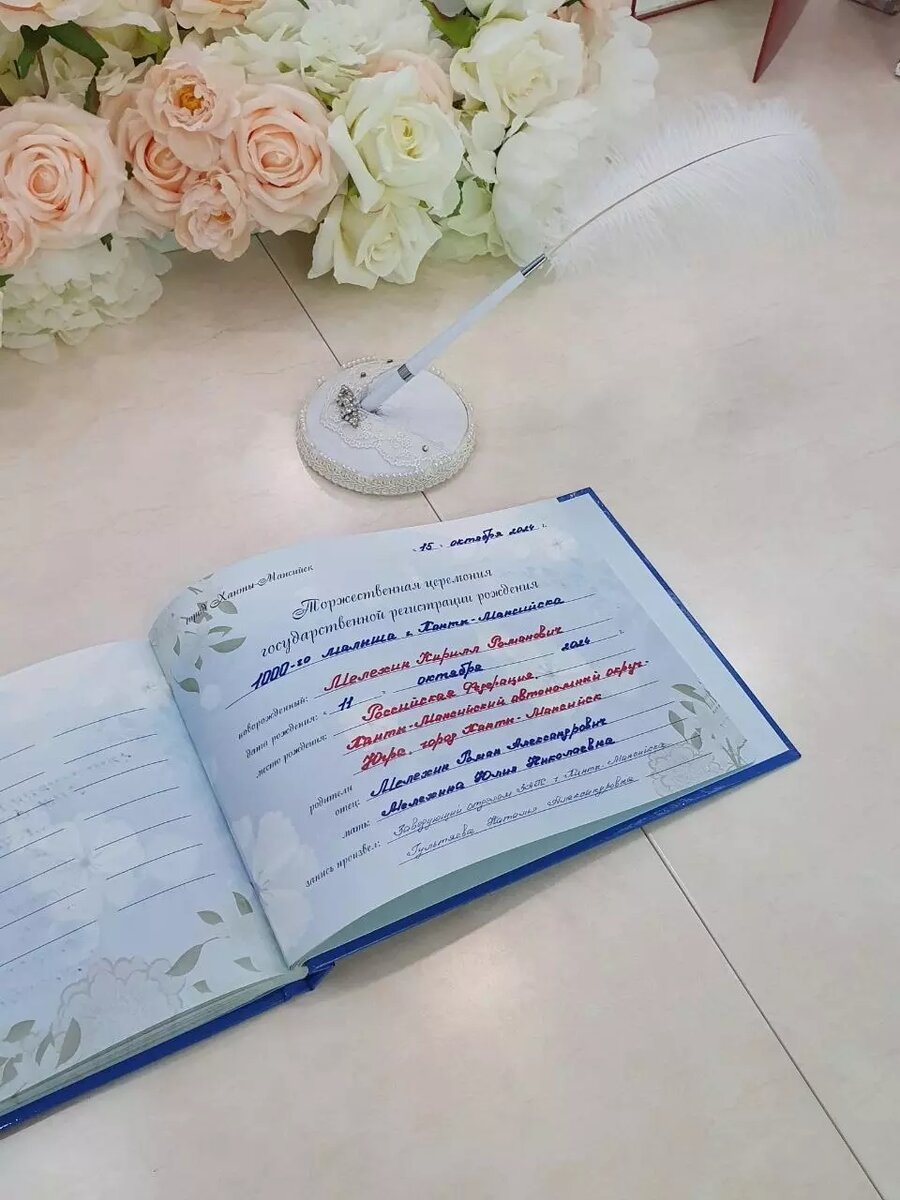 « 15 » октября 2024 г.
город Ханты-Мансийск
Торжественная церемония
государственной регистрации рождения
1000-го малыша г. Ханты-Мансийска
новорожденный: Мележин Кирилл Романович
дата рождения: « 11 » октября 2024 г.
место рождения: Российская Федерация,
Ханты-Мансийский автономный округ-
Югра, город Ханты-Мансийск
родители
отец: Мележин Роман Александрович
мать: Мележина Юлия Николаевна
запись произвел: Заведующий отделом ЗАГС г. Ханты-Мансийска
Гультяева Наталья Александровна